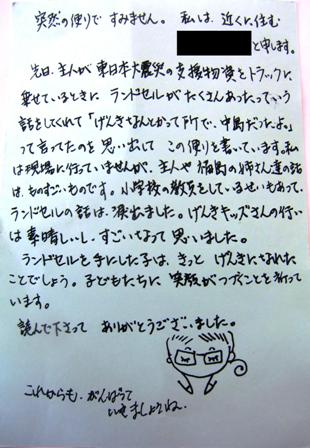 突然の便りで すみません。 私は、近くに住む
と申します。
先日、主人が東日本大震災の支援物資をトラックに
乗せているときに ランドセルが たくさんあったっていう
話をしてくれて「げんきなんとかって所で、中島だったよ。」
って言ってたのを 思い出して この便りを書いています。私
は現場に行っていませんが、主人や福島の姉さん達の話
は、ものすごいものです。小学校の教員をしているせいもあって、
ランドセルの話は、涙出ました。げんきキッズさんの行い
は素晴しいし、すごいなって 思いました。
ランドセルを手にした子は、きっと げんきになれた
ことでしょう。子どもたちに 笑顔がつづくことを祈って
います。
読んで下さって ありがとうございました。
これからも、がんばって
いきましょうね。